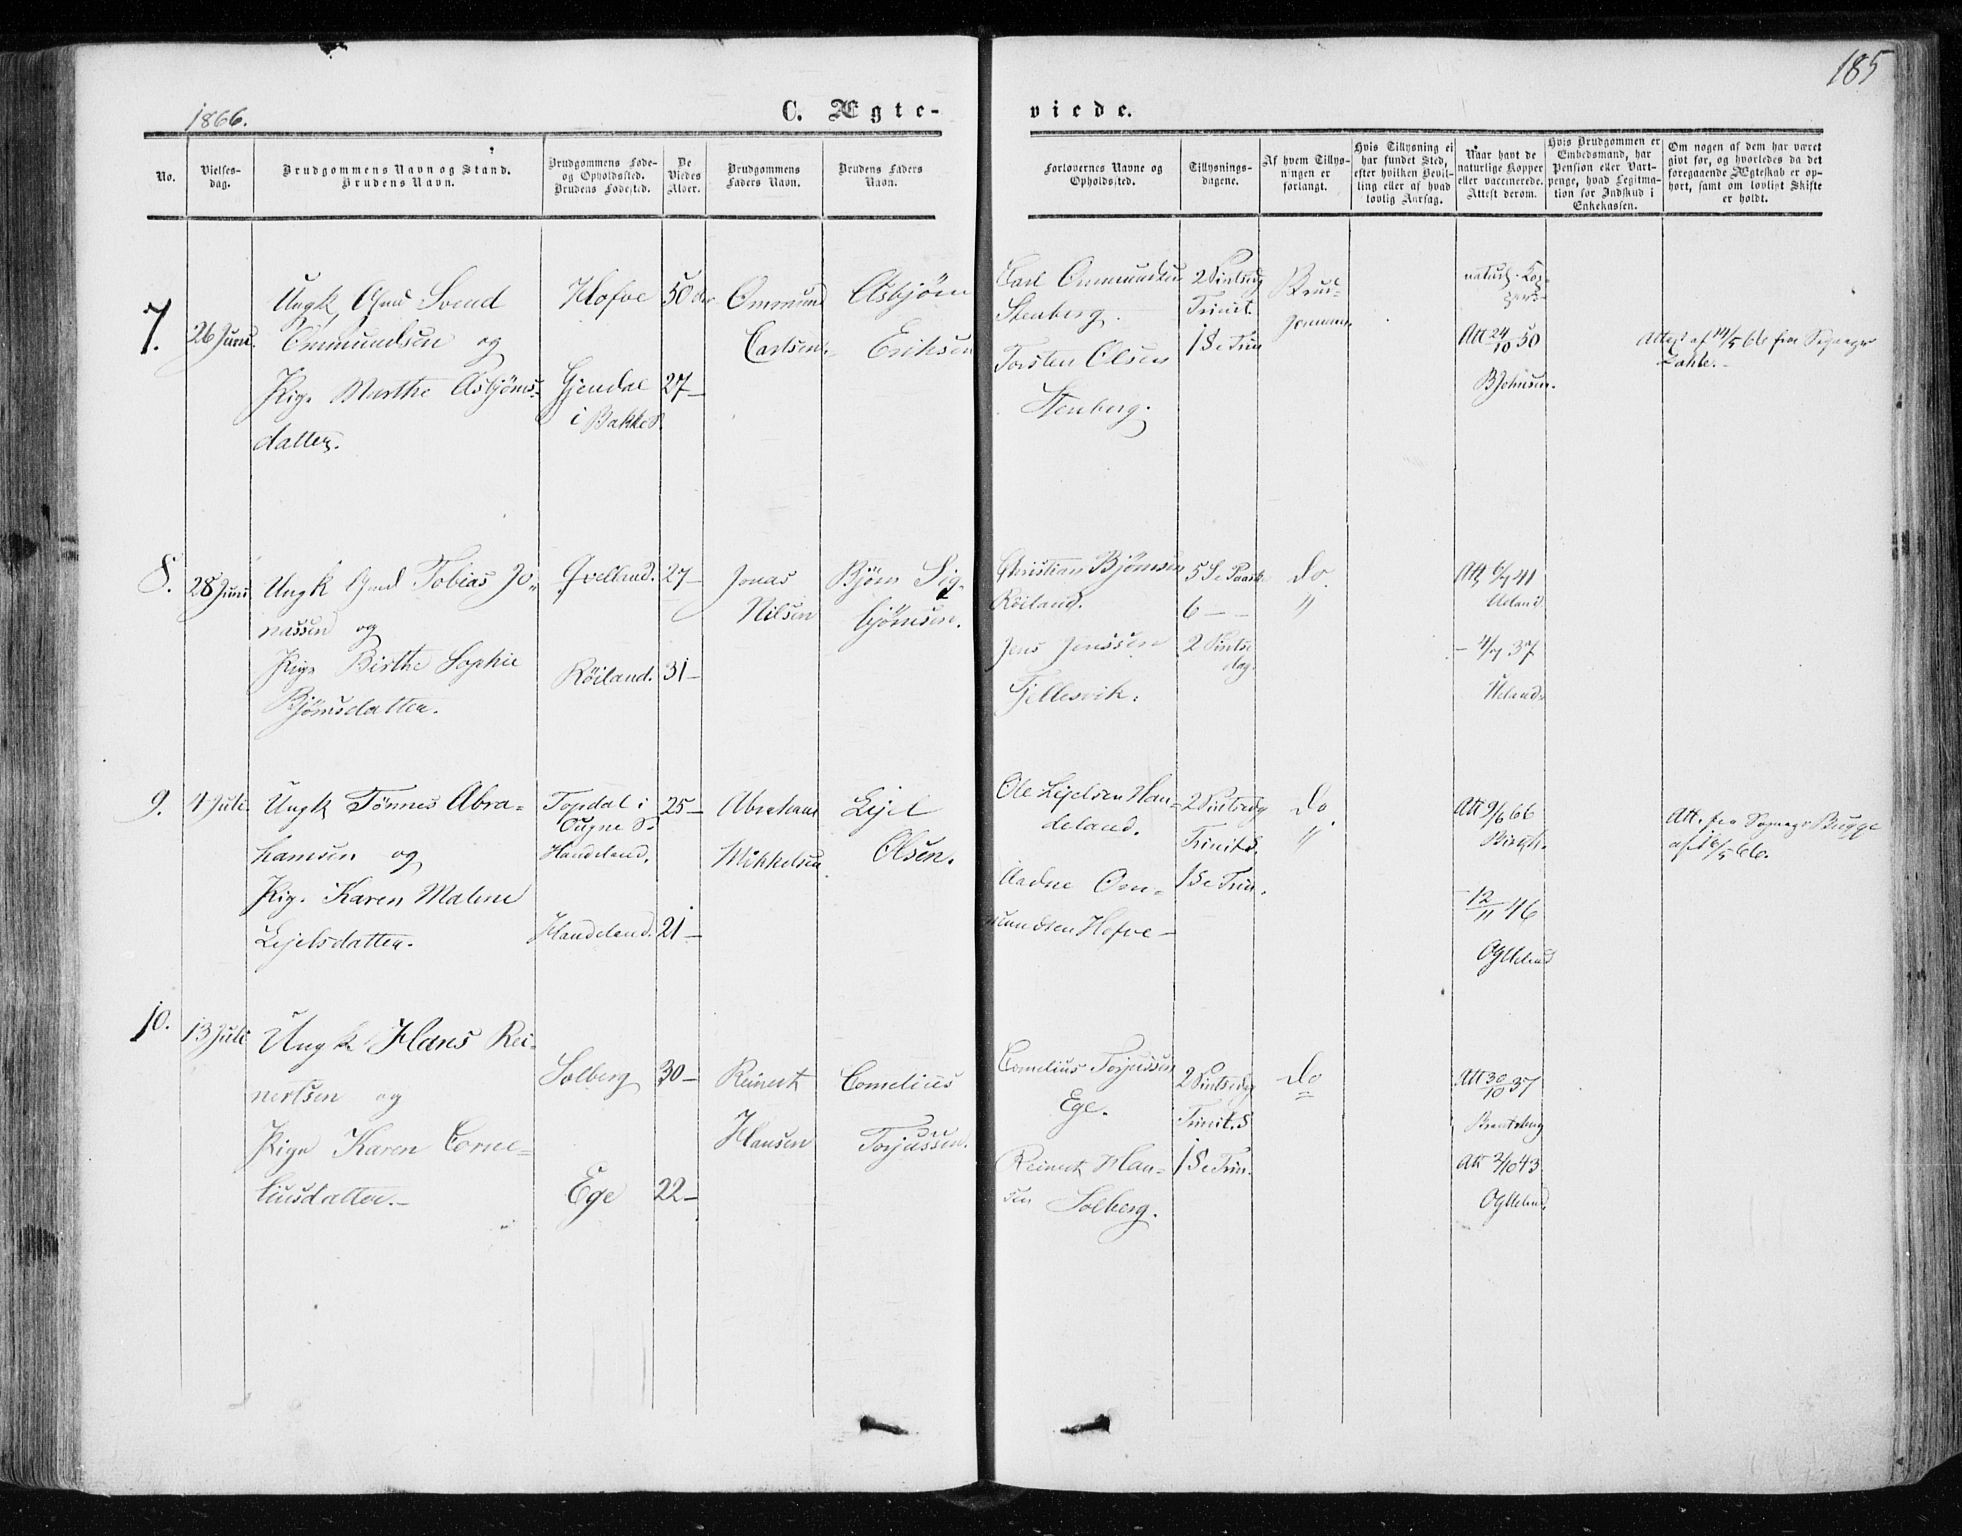 185
1866.
C. Ægte-
viede.
No.
Vielses-
dag.
Brudgommens Navn og Stand.
Brudens Navn.
Brudgommens Føde-
og Opholdssted.
Brudens Fødested.
De
Viedes
Alder.
Brudgommens
Faders Navn.
Brudens Faders
Navn.
Forlovernes Navne og
Opholdssted.
Tillysnings-
dagene.
Af hvem Tillys-
ningen er
forlangt.
Hvis Tillysning ei
har fundet Sted,
efter hvilken Bevil-
ling eller af hvad
lovlig Aarsag.
Naar havt de
naturlige Kopper
eller vaccinerede.
Attest derom.
Hvis Brudgommen er
Embedsmand, har
Pension eller Vart-
penge, hvad Legitima-
tion for Indskud i
Enkekassen.
Om nogen af dem har været
gift før, og hvorledes da det
foregaaende Ægteskab er op-
hørt, samt om lovligt Skifte
er holdt.
7.
26 Juni.
Ungk. Gmd Svend
Ommundsen og
Pige Marthe Asbjörns-
datter.
Hofve
Gjendal
i Bakke S.
50
27-
Ommund
Carlsen.
Asbjörn
Eriksen
Carl Ommundsen
Stenberg.
Torsten Olsen
Stenberg.
2 Pintsedg
Trinit.
1 S e Trin
Brud-
gommen
naturl. Kop-
per.
Att 24/10 50
BJohnsen.
Attest af 14/5 66 fra Sognepr
8.
28 Juni
Ungk Gmd Tobias Jo-
nassen og
Pige Birthe Sophie
Bjömsdatter.
Qvellend.
Röiland.
27-
31-
Jonas
Nilsen
Björn Sig-
björnsen.
Christian Björnsen
Röiland.
Jens Jenssen
Fjellesvik.
5 S e Paaske
6 - -
2 Pintse
dag.
do.
"
Att 6/7 41
Ueland
- 4/7 37
Ueland.
9.
4 Juli.
Ungk Tönnes Abra-
hamsen og
Pige Karen Malene
Lejelsdatter.
Topdal i
Ougne S.
Handeland.
Handeland.
25-
21-
Abraham
Mikkelsen
Lejel
Olsen.
Ole Lejelsen Han-
deland.
Aadne Om-
mundsen Hofve-
2 Pintsedg
Trinit S.
1 S e Trin.
do.
"
Att 9/6 66
- 12/11 46
OgUeland
Att. fra Sognepr Bugge
af 16/5 66.
10.
13 Juli
Ungk. Hans Rei-
nertsen og
Pige Karen Corne-
liusdatter.-
Solberg
Ege
30-
22-
Reinert
Hansen
Cornelius
Torjussen.
Cornelius Torjussen
Ege.
Reinert Han-
sen Solberg.
2 Pintsedg
Trinit. S
1 S e Trin.
do
=
Att 30/10 37
Att 2/10 43
OgUeland.